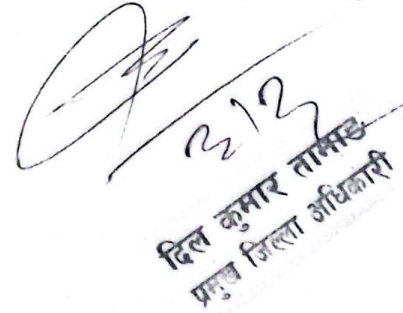 ३।३
दिल कुमार तामाङ
प्रमुख जिल्ला अधिकारी